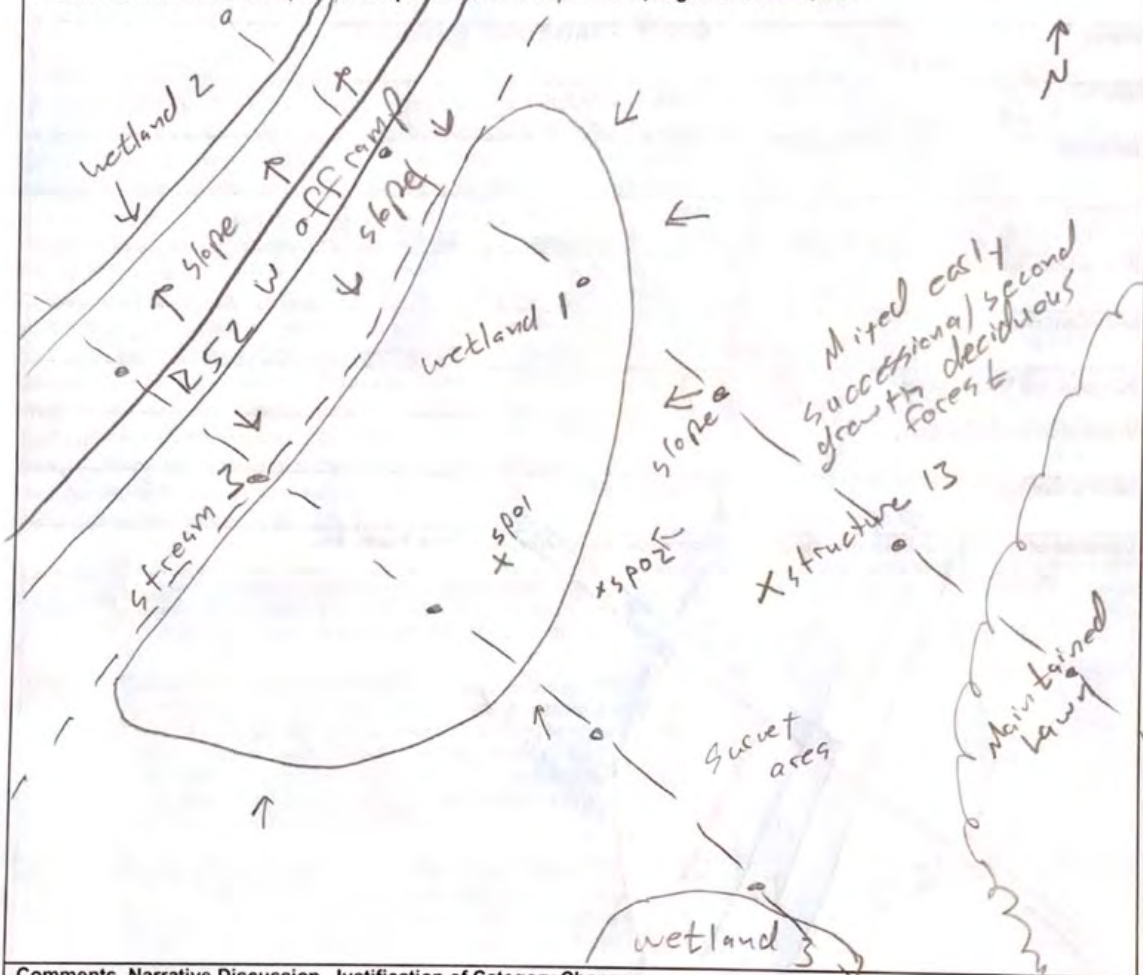 N
wetland 2
slope
R52 W off ramp
slope
wetland 1
stream 3
x sp01
x sp02
slope
Mixed early
successional/second
growth deciduous
forest
x structure 13
Maintained
Lawn
Survey
area
wetland 3
Comments, Narrative Discussion, Justification of Category